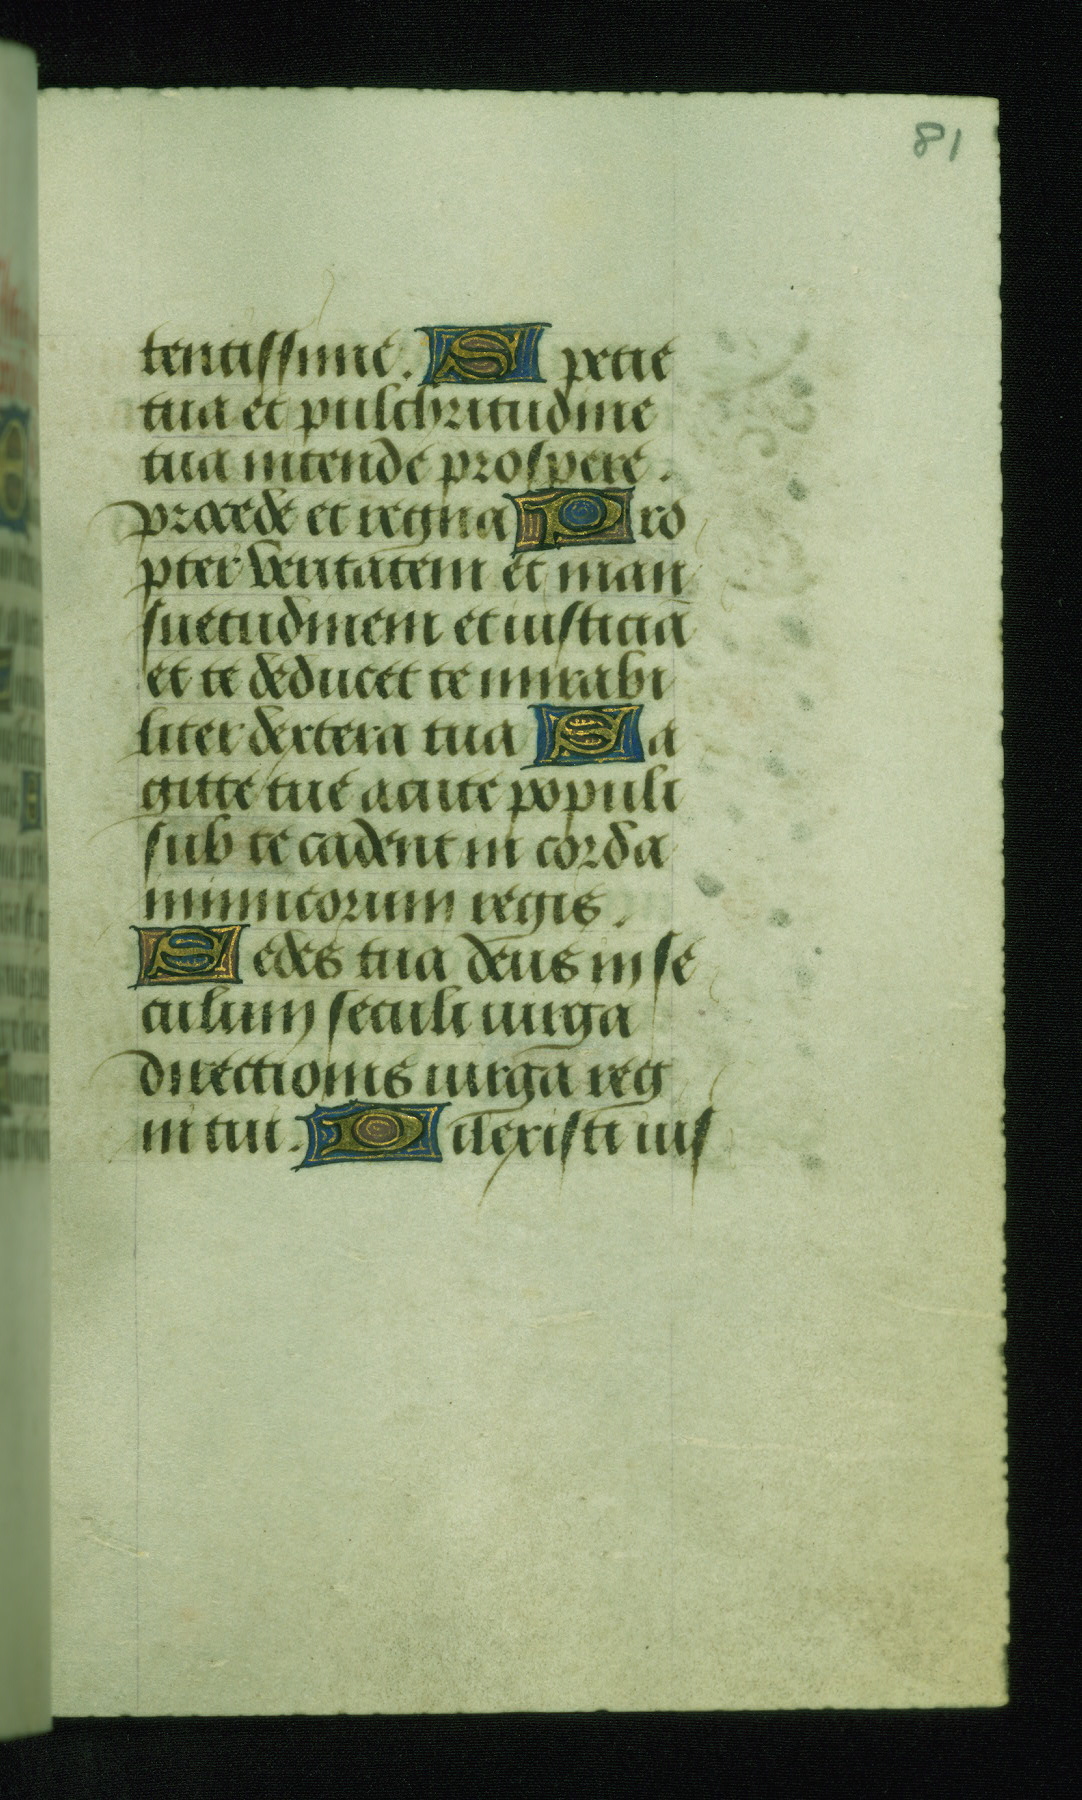 81
tentissime. Specie
tua et pulchritudine
tua intende prospere.
procede et regna Pro
pter veritatem et man
suetudinem et iusticiā
et te deducet te mirabi
liter dextera tua Sa
gitte tue acute populi
sub te cadent in corda
inimicorum regis.
Sedes tua deus in se
culum seculi uirga
directionis uirga reg
ni tui. Dilexisti ius